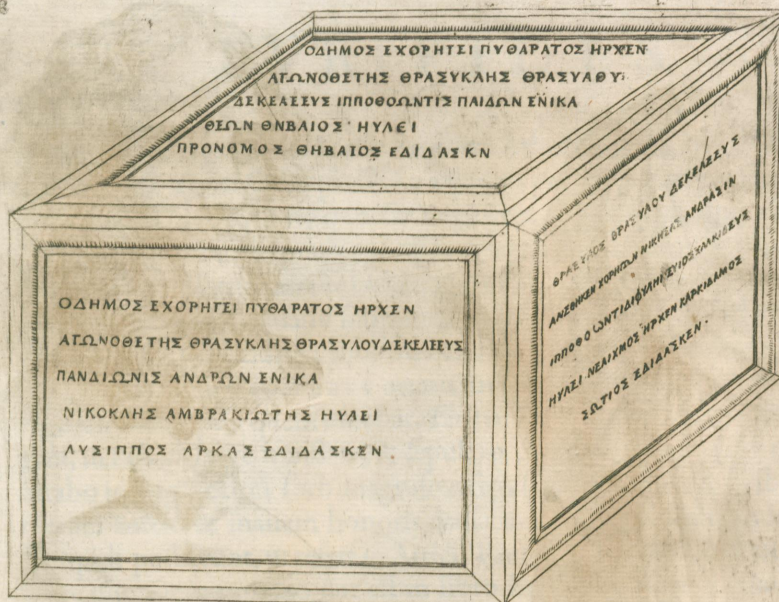 ΟΔΗΜΟΣ ΕΧΟΡΗΓΕΙ ΠΥΘΑΡΑΤΟΣ ΗΡΧΕΝ
ΑΓΩΝΟΘΕΤΗΣ ΘΡΑΣΥΚΛΗΣ ΘΡΑΣΥΛΘΥ
ΔΕΚΕΛΕΕΥΣ ΙΠΠΟΘΟΩΝΤΙΣ ΠΑΙΔΩΝ ΕΝΙΚΑ
ΘΕΩΝ ΘΝΒΑΙΟΣ ΗΥΛΕΙ
ΠΡΟΝΟΜΟΣ ΘΗΒΑΙΟΣ ΕΔΙΔΑΣΚΝ
ΟΔΗΜΟΣ ΕΧΟΡΗΓΕΙ ΠΥΘΑΡΑΤΟΣ ΗΡΧΕΝ
ΑΓΩΝΟΘΕΤΗΣ ΘΡΑΣΥΚΛΗΣ ΘΡΑΣΥΛΟΥ ΔΕΚΕΛΕΕΥΣ
ΠΑΝΔΙΩΝΙΣ ΑΝΔΡΩΝ ΕΝΙΚΑ
ΝΙΚΟΚΛΗΣ ΑΜΒΡΑΚΙΩΤΗΣ ΗΥΛΕΙ
ΛΥΣΙΠΠΟΣ ΑΡΚΑΣ ΕΔΙΔΑΣΚΕΝ
ΘΡΑΣΥΛΟΣ ΘΡΑΣΥΛΟΥ ΔΕΚΕΛΕΕΥΣ
ΑΝΕΘΗΚΕΝ ΧΟΡΗΓΩΝ ΝΙΚΗΣΑΣ ΑΝΔΡΑΣΙΝ
ΙΠΠΟΘΟΩΝΤΙΔΙΦΥΛΗΙ ΕΥΙΟΣ ΧΑΛΚΙΔΕΥΣ
ΗΥΛΕΙ ΝΕΑΙΧΜΟΣ ΗΡΧΕΝ ΚΑΡΚΙΔΑΜΟΣ
ΣΩΤΙΟΣ ΕΔΙΔΑΣΚΕΝ.